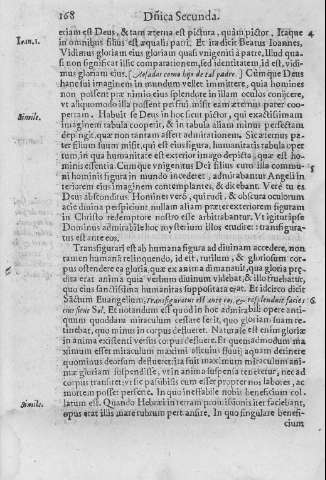 168 Dñica Secunda.
etiam est Deus, & tam æterna est pictura, quàm pictor. Itaque 4
Ioan.1. in omnibus filius est æqualis patri. Et ita dicit Beatus Ioannes,
Vidimus gloriam eius gloriam quasi vnigeniti à patre, Illud quasi
non significat hîc comparationem, sed identitatem, id est, vidimus
gloriam eius. Cumque Deus
hanc sui imaginem in mundum vellet immittere, quia homines
non possent præ nimio eius splendore in illam oculos conijcere,
vt aliquo modo illa possent perfrui, misit eam æternus pater coopertam.
Simile. Habuit se Deus in hoc sicut pictor, qui exactissimam
imaginem tabula cooperit, & in tabula aliam minus perfectam
depingit, quæ non tantam asserit admirationem. Sic æternus pater
filium suum misit, qui est eius figura, humanitatis tabula opertum,
in qua humanitate est exterior imago depicta, quæ est hominis
essentia. Cumque vnigenitus Dei filius cum illa communi 5
hominis figura in mundo incederet, admirabantur Angeli interiorem
eius imaginem contemplantes, & dicebant. Verè tu es
Deus absconditus. Homines verò, qui rudi, & obscura oculorum
acie diuina perspiciunt, nullam aliam præter exteriorem figuram
in Christo redemptore nostro esse arbitrabantur. Vt igitur ipse
Dominus admirabile hoc mysterium illos erudiret: transfiguratus
est ante eos.
Transfigurari est ab humana figura ad diuinam accedere, non
tamen humanã relinquendo, id est, rutilum, & gloriosum corpus
ostendere ea gloria, quæ ex anima dimanauit, qua gloria prædita
erat anima quia verbum diuinum videbat, & illo fruebatur,
quo eius sanctissima humanitas suppositata erat. Et idcirco dicit
Sãctum Euangelium, transfiguratus est ante eos, & resplenduit facies 6
eius sicut Sol. Et notandum est quod in hoc admirabili opere antiquum
quoddam miraculum cessare fecit, quo gloriam suam retinebat,
quo minus in corpus deflueret. Naturale est enim gloriæ
in anima existenti versus corpus defluere. Et quemadmodum maximum
esset miraculum maximi oliculu fluui aquam detinere
quominus deorsum deflueret: ita fuit maximum miraculum animæ
gloriam suspendisse, vt in anima suspensa teneretur, nec ad
corpus transiret: vt sic passibilis cum esset propter nos labores, ac
mortem posset perferre. In quo ineffabile nobis beneficium collatum
Simile. est. Quando Hebræi in terram promissionis iter faciebant,
opus erat illis mare rubrum pertransire. In quo singulare beneficium